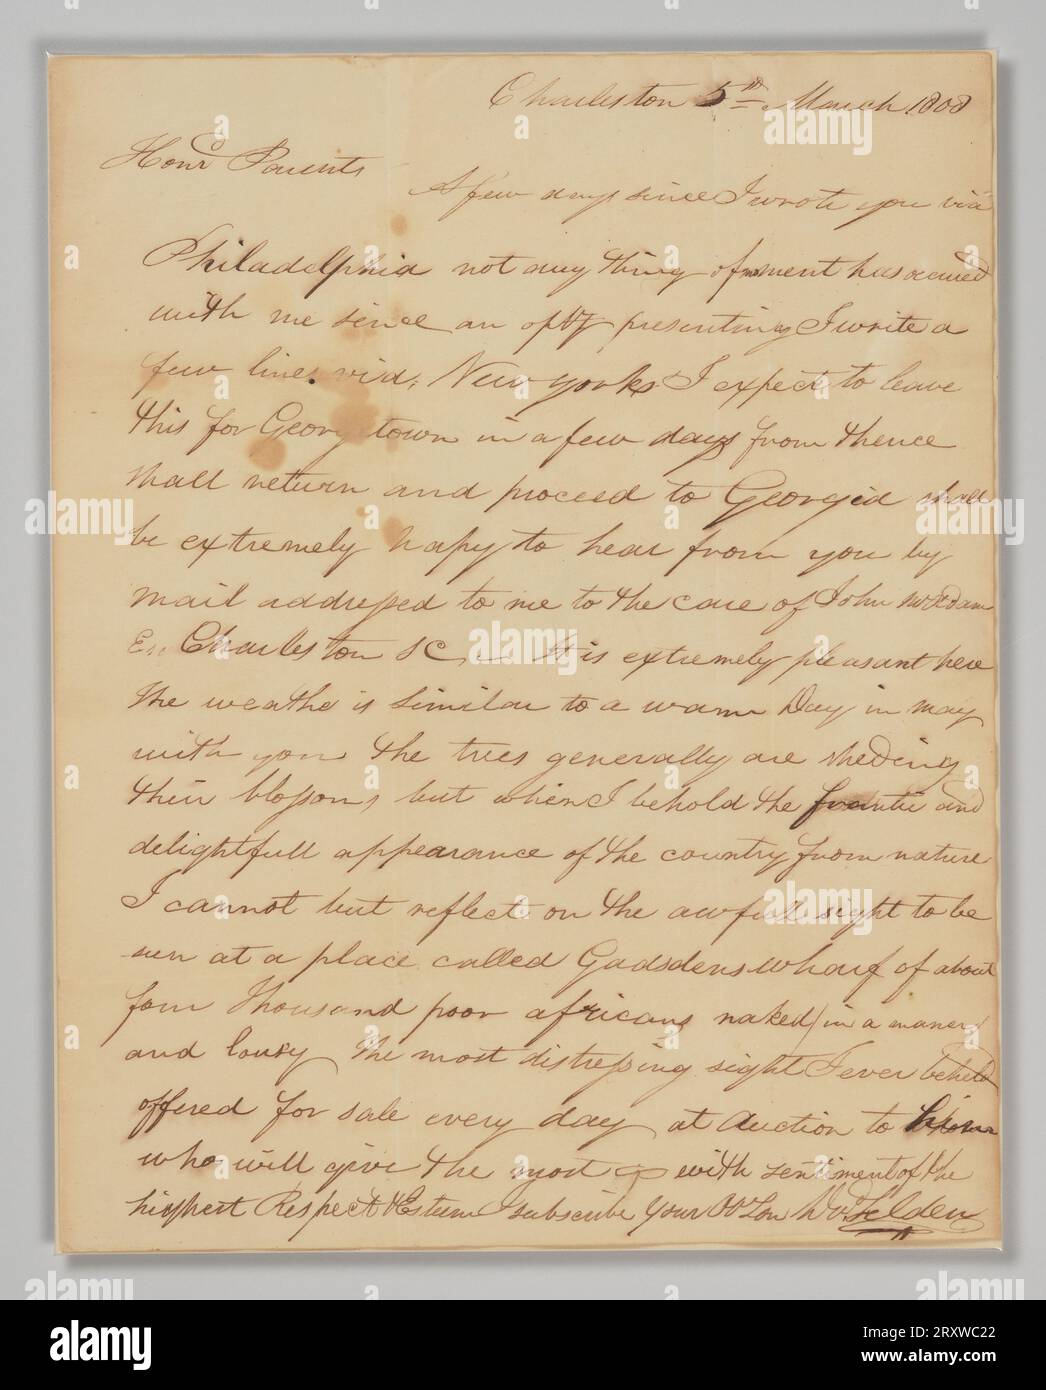 Charleston 5th March 1808
Honr Parents
A few days since I wrote you via
Philadelphia not any thing of moment has occured
with me since an opty presenting I write a
few lines via, New york I expect to leave
this for Georgetown in a few days from thence
shall return and proceed to Georgia shall
be extremely hapy to hear from you by
mail addressed to me to the care of John
Charleston SC It is extremely pleasant here
the weathe is similar to a warm Day in may
with you the trees generally are sheding
their blossoms but when I behold the and
delightfull appearance of the country from nature
I cannot but reflect on the awfull sight to be
seen at a place called Gadsdens wharf of about
four thousand poor africans naked (in a maner)
and lousy the most distressing sight I ever beheld
offered for sale every day at Auction to him
who will give the most with sentiment of the
highest Respect & Esteem I subscribe your Selden
alamy
Image ID: 2RXWC22
www.alamy.com